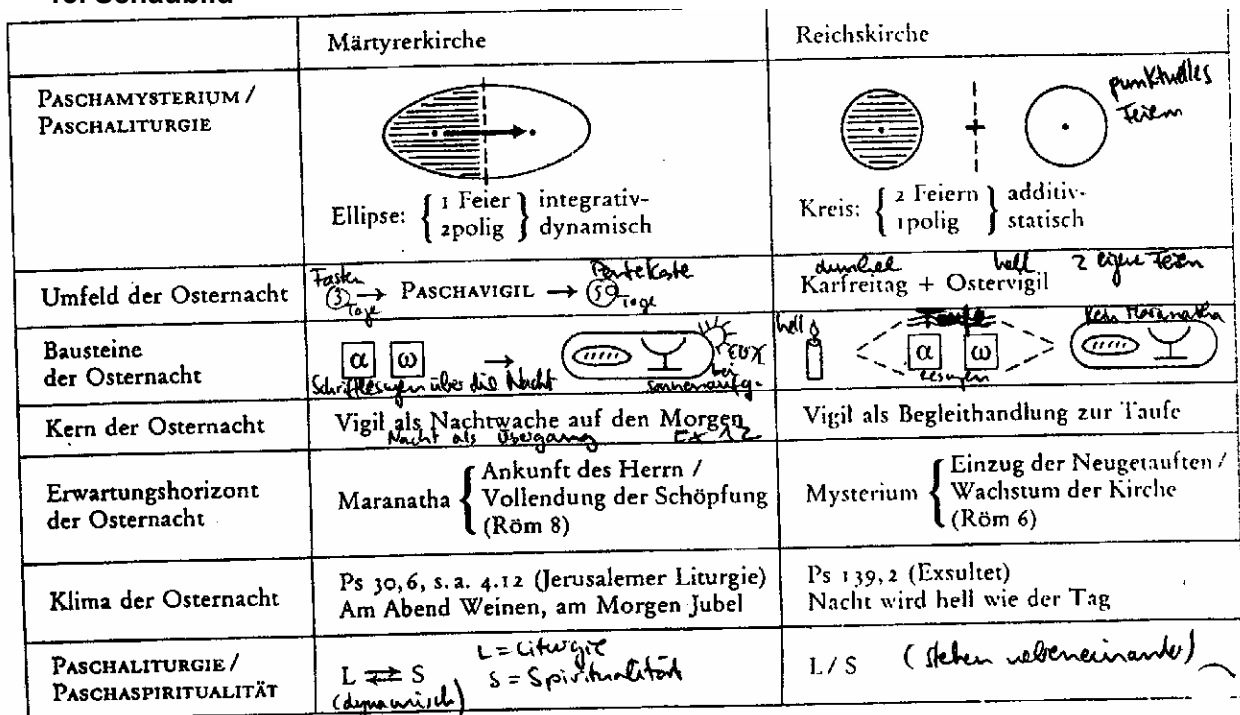 Märtyrerkirche
Reichskirche
PASCHAMYSTERIUM /
PASCHALITURGIE
Ellipse: { 1 Feier } integrativ-
2polig dynamisch
punktuelles
Feiern
Kreis: { 2 Feiern } additiv-
1polig statisch
Umfeld der Osternacht
Fasten
3 Tage → PASCHAVIGIL → 50 Tage
Pentekoste
dunkel hell 2 eigene Feiern
Karfreitag + Ostervigil
Bausteine
der Osternacht
α ω →
Schriftlesungen über die Nacht
bei
sonnenaufg.
hell
α ω
Lesungen
kein Maranatha
Kern der Osternacht
Vigil als Nachtwache auf den Morgen
Nacht als Übergang Ex 12
Vigil als Begleithandlung zur Taufe
Erwartungshorizont
der Osternacht
Maranatha { Ankunft des Herrn /
Vollendung der Schöpfung
(Röm 8)
Mysterium { Einzug der Neugetauften /
Wachstum der Kirche
(Röm 6)
Klima der Osternacht
Ps 30,6, s.a. 4.12 (Jerusalemer Liturgie)
Am Abend Weinen, am Morgen Jubel
Ps 139,2 (Exsultet)
Nacht wird hell wie der Tag
PASCHALITURGIE /
PASCHASPIRITUALITÄT
L ⇄ S
(dynamisch)
L = Liturgie
S = Spiritualität
L / S (stehen nebeneinander)